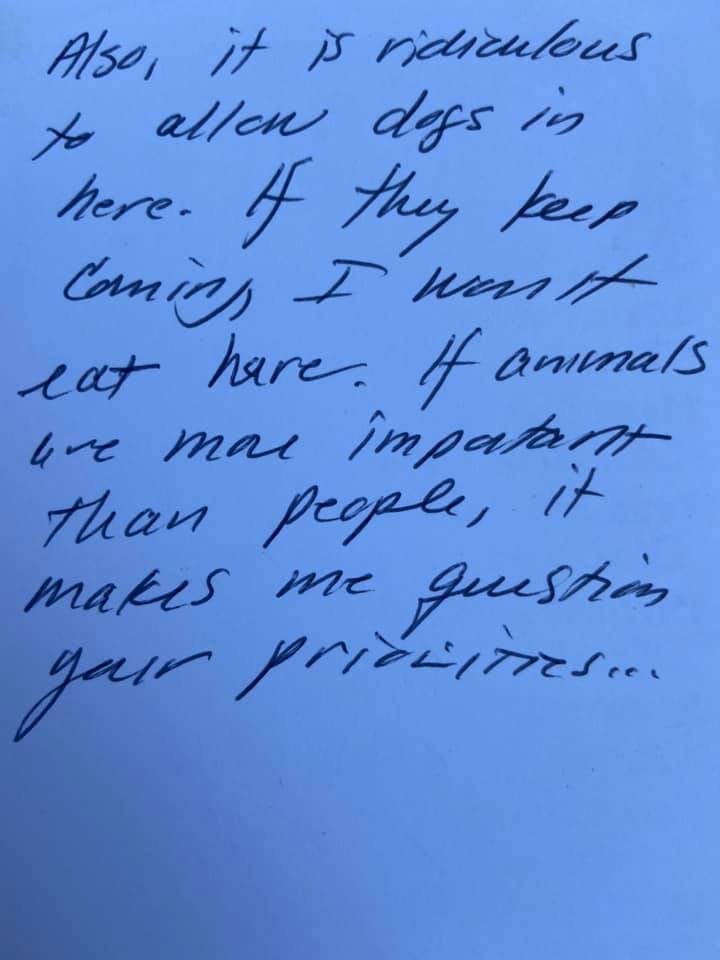 Also, it is ridiculous
to allow dogs in
here. If they keep
coming, I won't
eat here. If animals
are more important
than people, it
makes me question
your priorities...